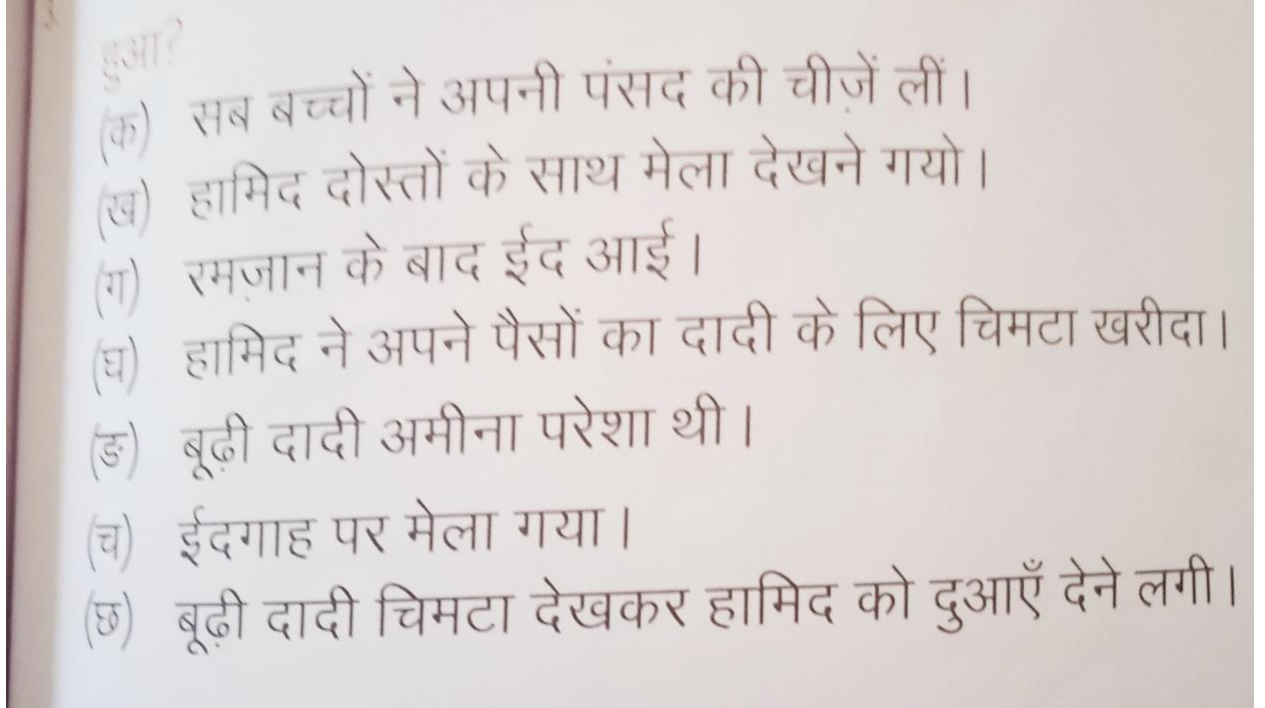 हुआ?
(क) सब बच्चों ने अपनी पंसद की चीज़ें लीं।
(ख) हामिद दोस्तों के साथ मेला देखने गयो।
(ग) रमज़ान के बाद ईद आई।
(घ) हामिद ने अपने पैसों का दादी के लिए चिमटा खरीदा।
(ङ) बूढ़ी दादी अमीना परेशा थी।
(च) ईदगाह पर मेला गया।
(छ) बूढ़ी दादी चिमटा देखकर हामिद को दुआएँ देने लगी।